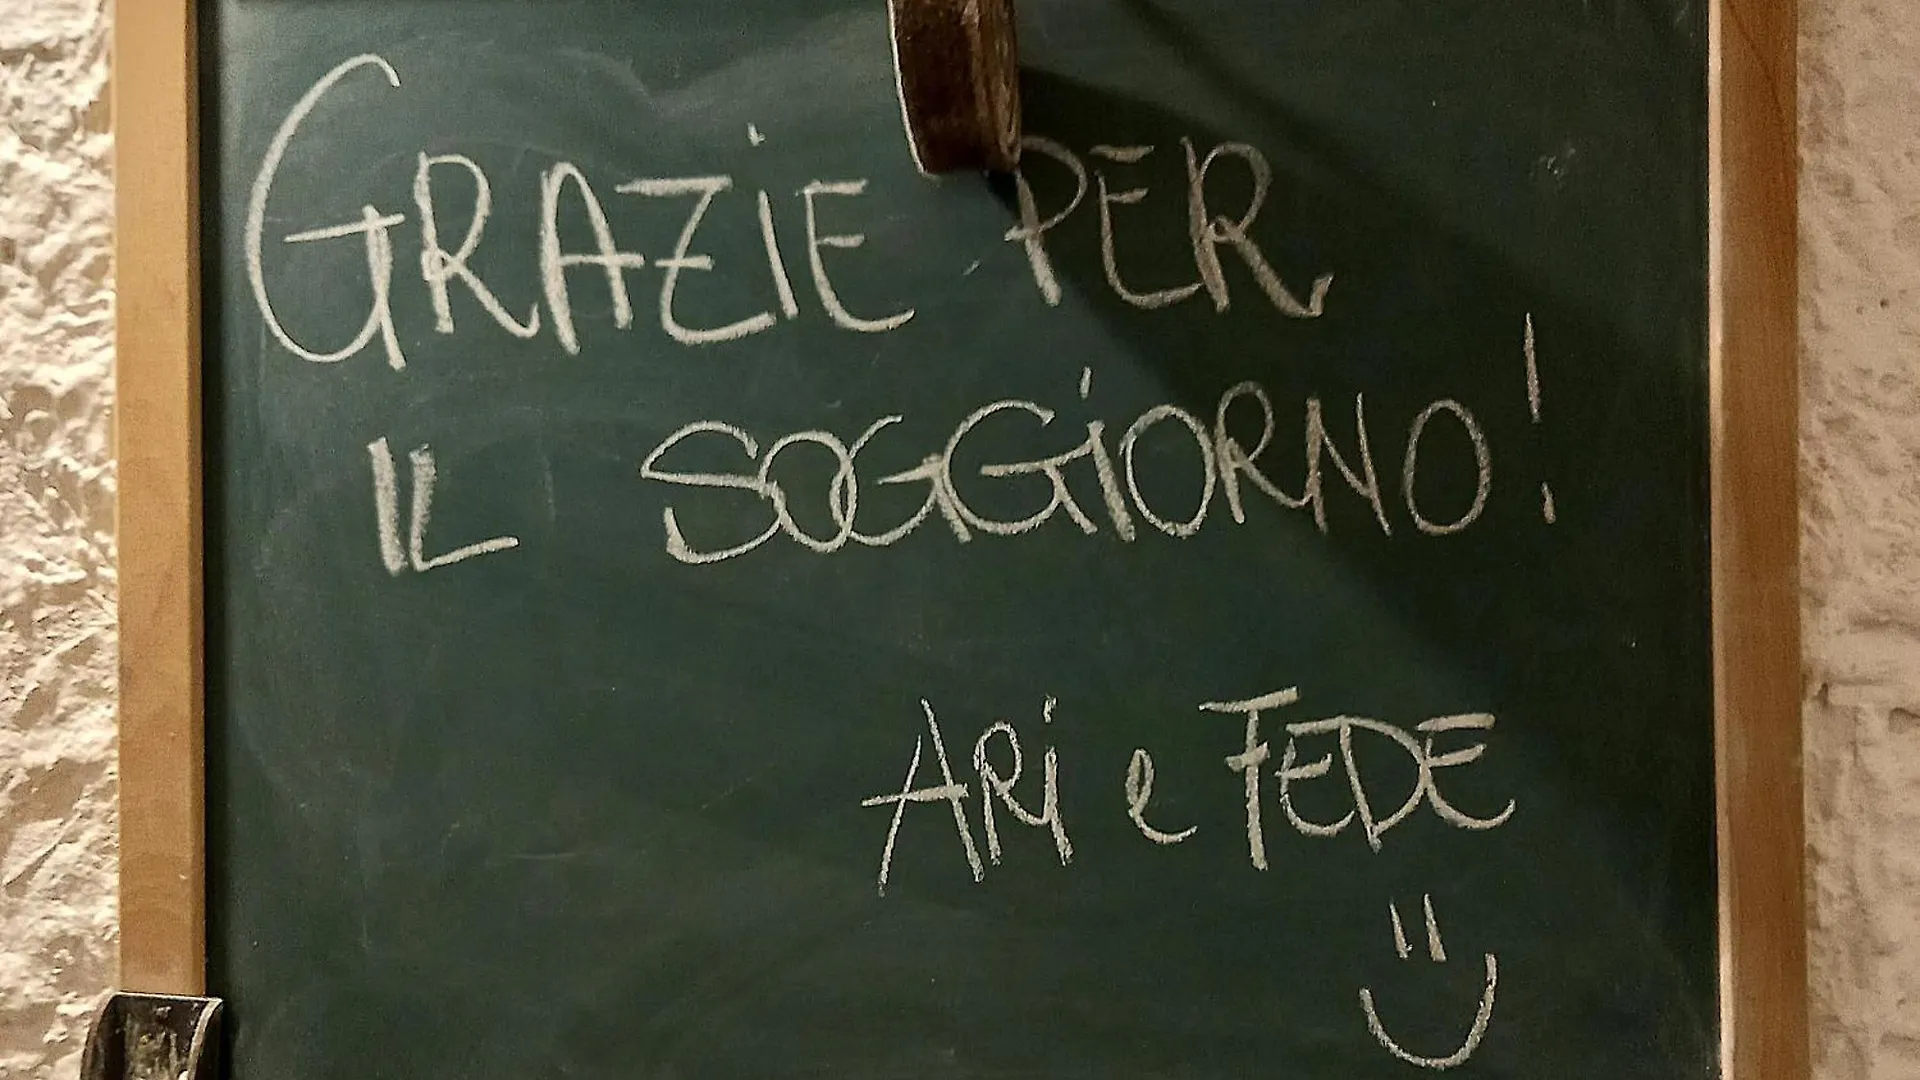 GRAZiE PER
IL SOGGiORNO!
ARi e FEDE